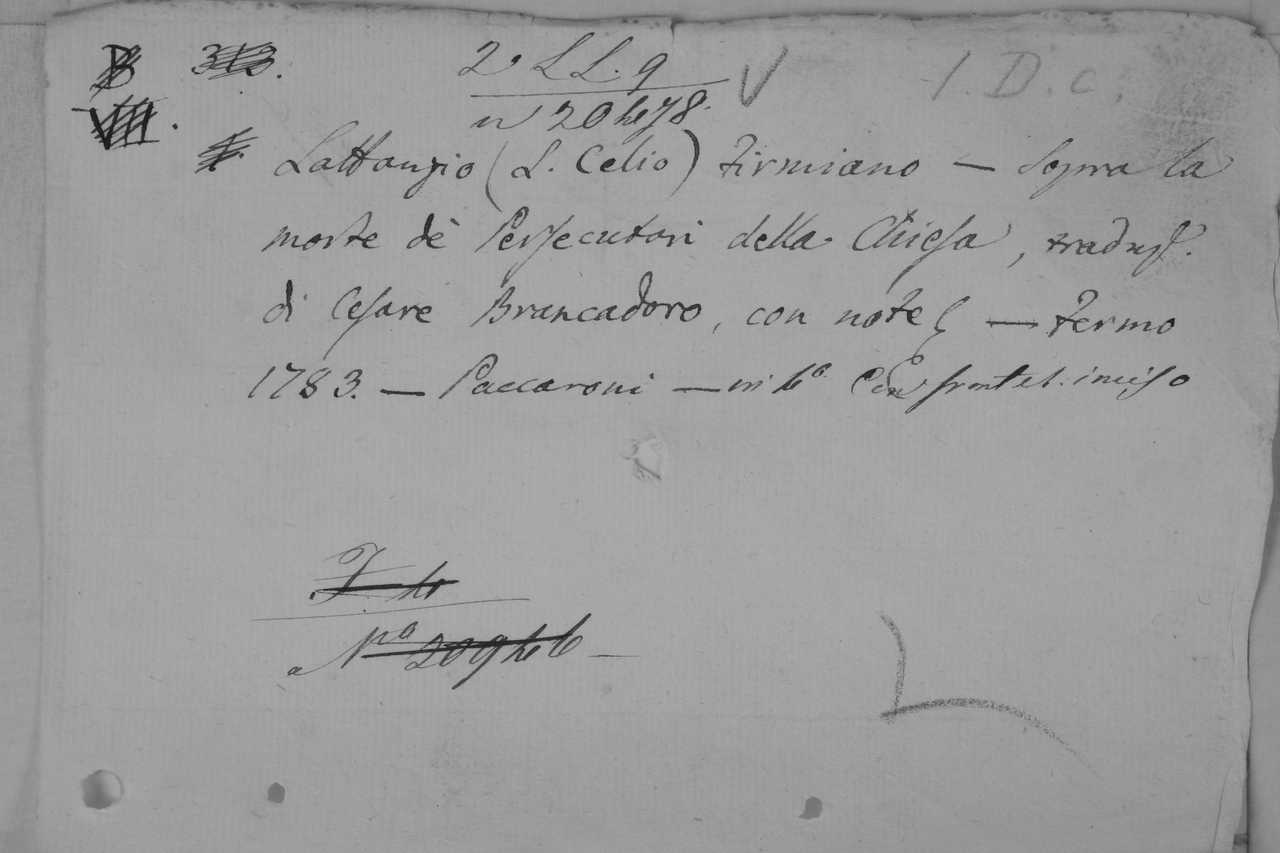 B 313.
2. LL. 9
1. D. c.
VIII.
n 20476
Lattanzio (L. Celio) Firmiano — Sopra la
morte dè Persecutori della Chiesa, traduz.
di Cesare Brancadoro, con note — Fermo
1783. — Paccaroni — in 4° Con frontes. inciso
N.º
L